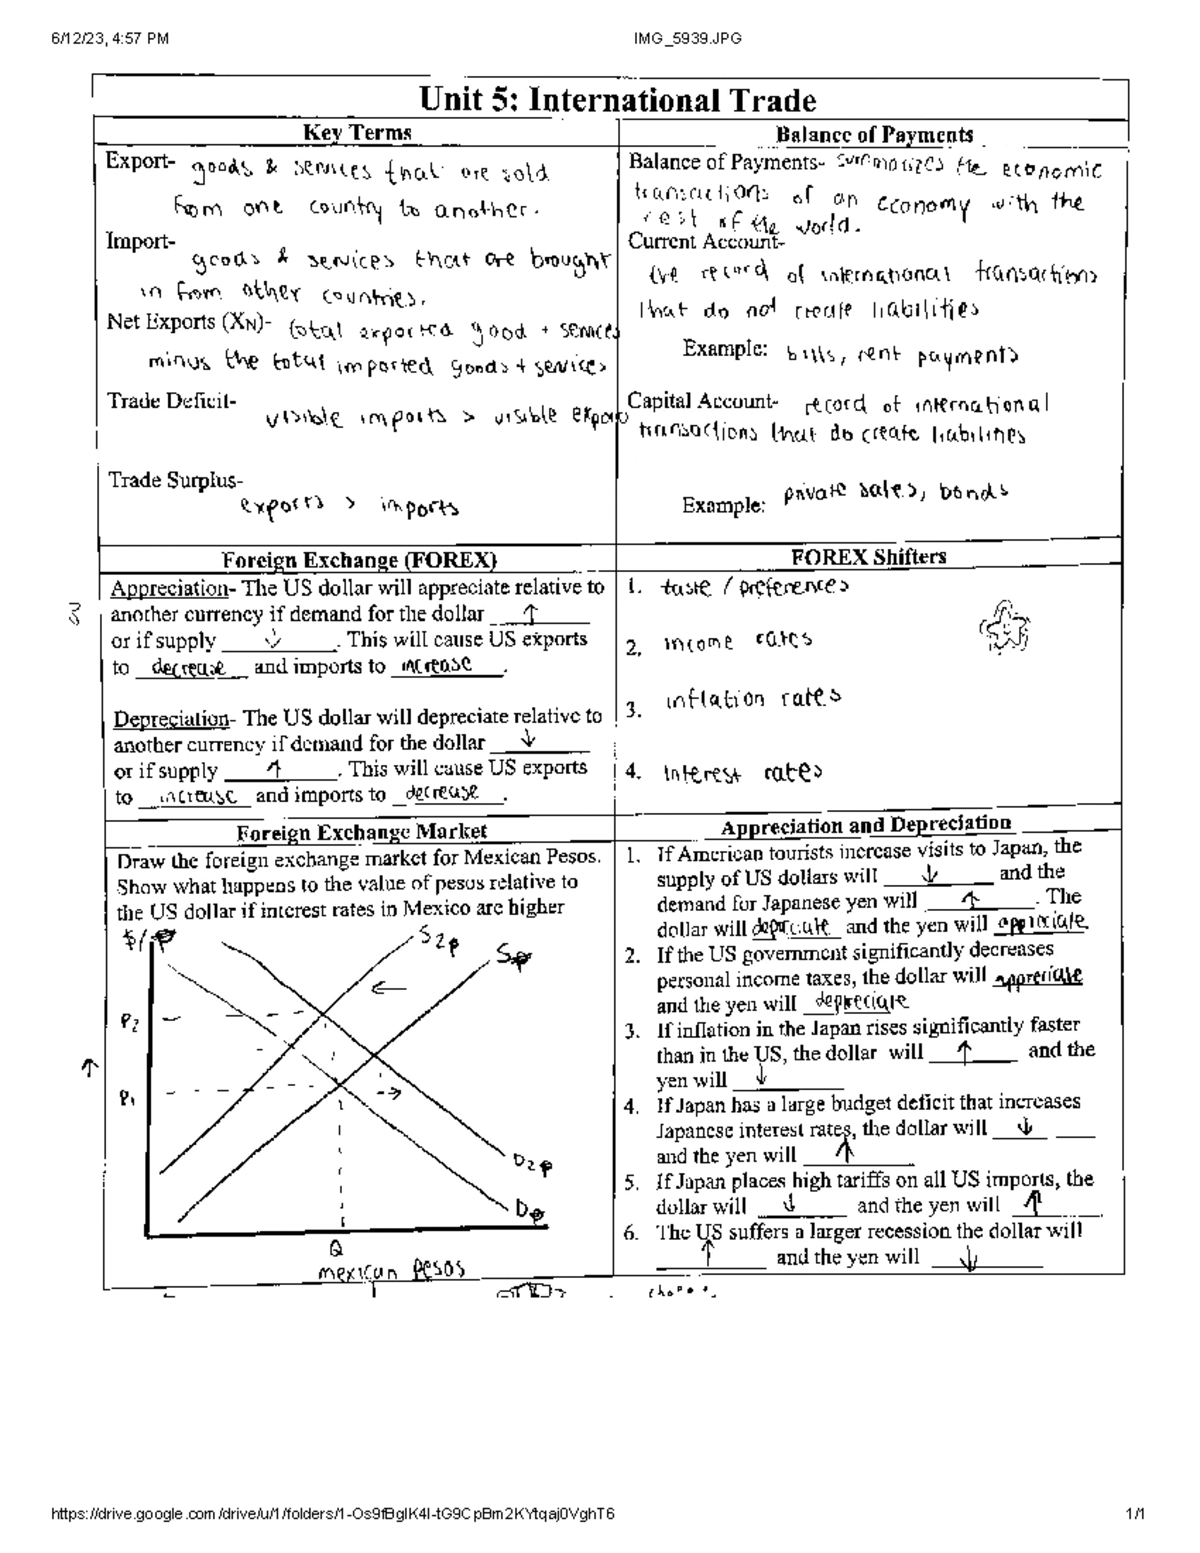 6/12/23, 4:57 PM IMG_5939.JPG
Unit 5: International Trade
Key Terms
Export- goods & services that are sold
from one country to another.
Import-
goods & services that are brought
in from other countries.
Net Exports (XN)- total exported good + services
minus the total imported goods + services
Trade Deficit-
visible imports > visible expor
Trade Surplus-
exports > imports
Balance of Payments
Balance of Payments- summarizes the economic
transactions of an economy with the
rest of the world.
Current Account-
the record of international transactions
that do not create liabilities
Example: bills, rent payments
Capital Account- record of international
transactions that do create liabilities
Example: private sales, bonds
Foreign Exchange (FOREX)
Appreciation- The US dollar will appreciate relative to
another currency if demand for the dollar ↑
or if supply ↓. This will cause US exports
to decrease and imports to increase.
Depreciation- The US dollar will depreciate relative to
another currency if demand for the dollar ↓
or if supply ↑. This will cause US exports
to increase and imports to decrease.
FOREX Shifters
1. taste / preferences
2. income rates
3. inflation rates
4. interest rates
Foreign Exchange Market
Draw the foreign exchange market for Mexican Pesos.
Show what happens to the value of pesos relative to
the US dollar if interest rates in Mexico are higher
$/P
S2p
Sp
←
P2
↑
P1
→
D2p
Dp
Q
mexican pesos
Appreciation and Depreciation
1. If American tourists increase visits to Japan, the
supply of US dollars will ↓ and the
demand for Japanese yen will ↑. The
dollar will depriciate and the yen will appriciate
2. If the US government significantly decreases
personal income taxes, the dollar will appreciate
and the yen will depreciate
3. If inflation in the Japan rises significantly faster
than in the US, the dollar will ↑ and the
yen will ↓
4. If Japan has a large budget deficit that increases
Japanese interest rates, the dollar will ↓
and the yen will ↑
5. If Japan places high tariffs on all US imports, the
dollar will ↓ and the yen will ↑.
6. The US suffers a larger recession the dollar will
↑ and the yen will ↓
1/1